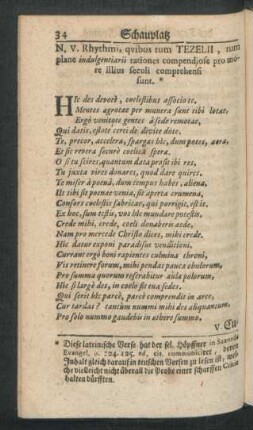 34 Schauplatz
N. V. Rhythmi, qvibus tum TEZELII, tum
plane indulgentiarii rationes compendiose pro mo-
re illius seculi comprehensi
sunt. *
HIc des devotè, coelestibus associo te.
Mentes agrotæ per munera sunt sibi lotæ.
Ergò venitote gentes à sede remotæ,
Qui datis, estote certi de divite dote.
Te, precor, accelera, spargas hîc, dum potes, æra.
Et sic revera securè coelica spera.
O si tu scires, quantum data prosit ibi res,
Tu juxta vires donares, quod dare quires.
Te miser à poenâ, dum tempus habes, aliena.
Ut tibi sit poenæ venia, sit aperta crumena,
Consors coelestis fabricæ, qui porrigit, est is.
Ex hoc, sum testis, vos hîc mundare potestis,
Crede mihi, crede, coeli donaberis æde,
Nam pro mercede Christo dices, mihi crede.
Hic datur exponi paradisus venditioni.
Currant ergò boni rapientes culmina throni,
Vis retinere forum, mihi pendas pauca obulorum,
Pro summa quorum reserabitur aula polorum.
Hic si largè des, in coelo sit tua sedes.
Qui serit hîc parcè, parcè comprendit in arce,
Cur tardas? tantum nummi mihi des aliquantum,
Pro solo nummo gaudebis in æthere summo.
* Diese lateinische Verse hat der sel. Höpffner in
Evangel. p. 124. 125. ed. cit. communiciret,
Inhalt gleich darauf in teutschen Versen zu lesen ist,
che vielleicht nicht überall die Probe einer scharffen
halten dürfften.